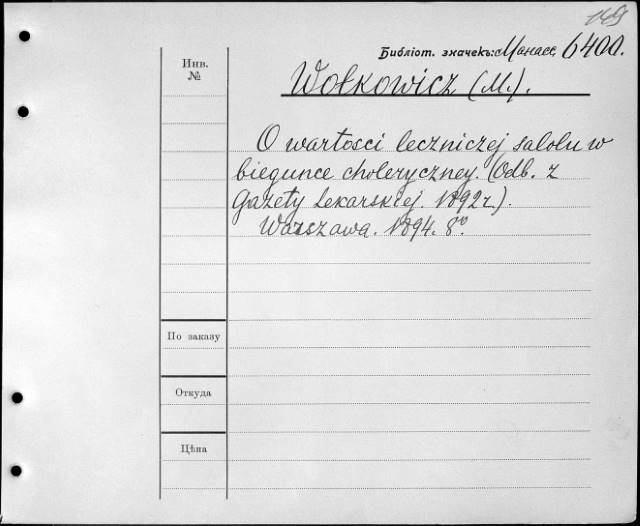 149
Библіот. значекъ: Манасс. 6400.
Инв.
№
Wołkowicz (M.).
O wartosci leczniczej salolu w
biegunce cholerycznej. (Odb. z
Gazety Lekarskiej. 1892 r.).
Warszawa. 1894. 8º.
По заказу
Откуда
Цѣна